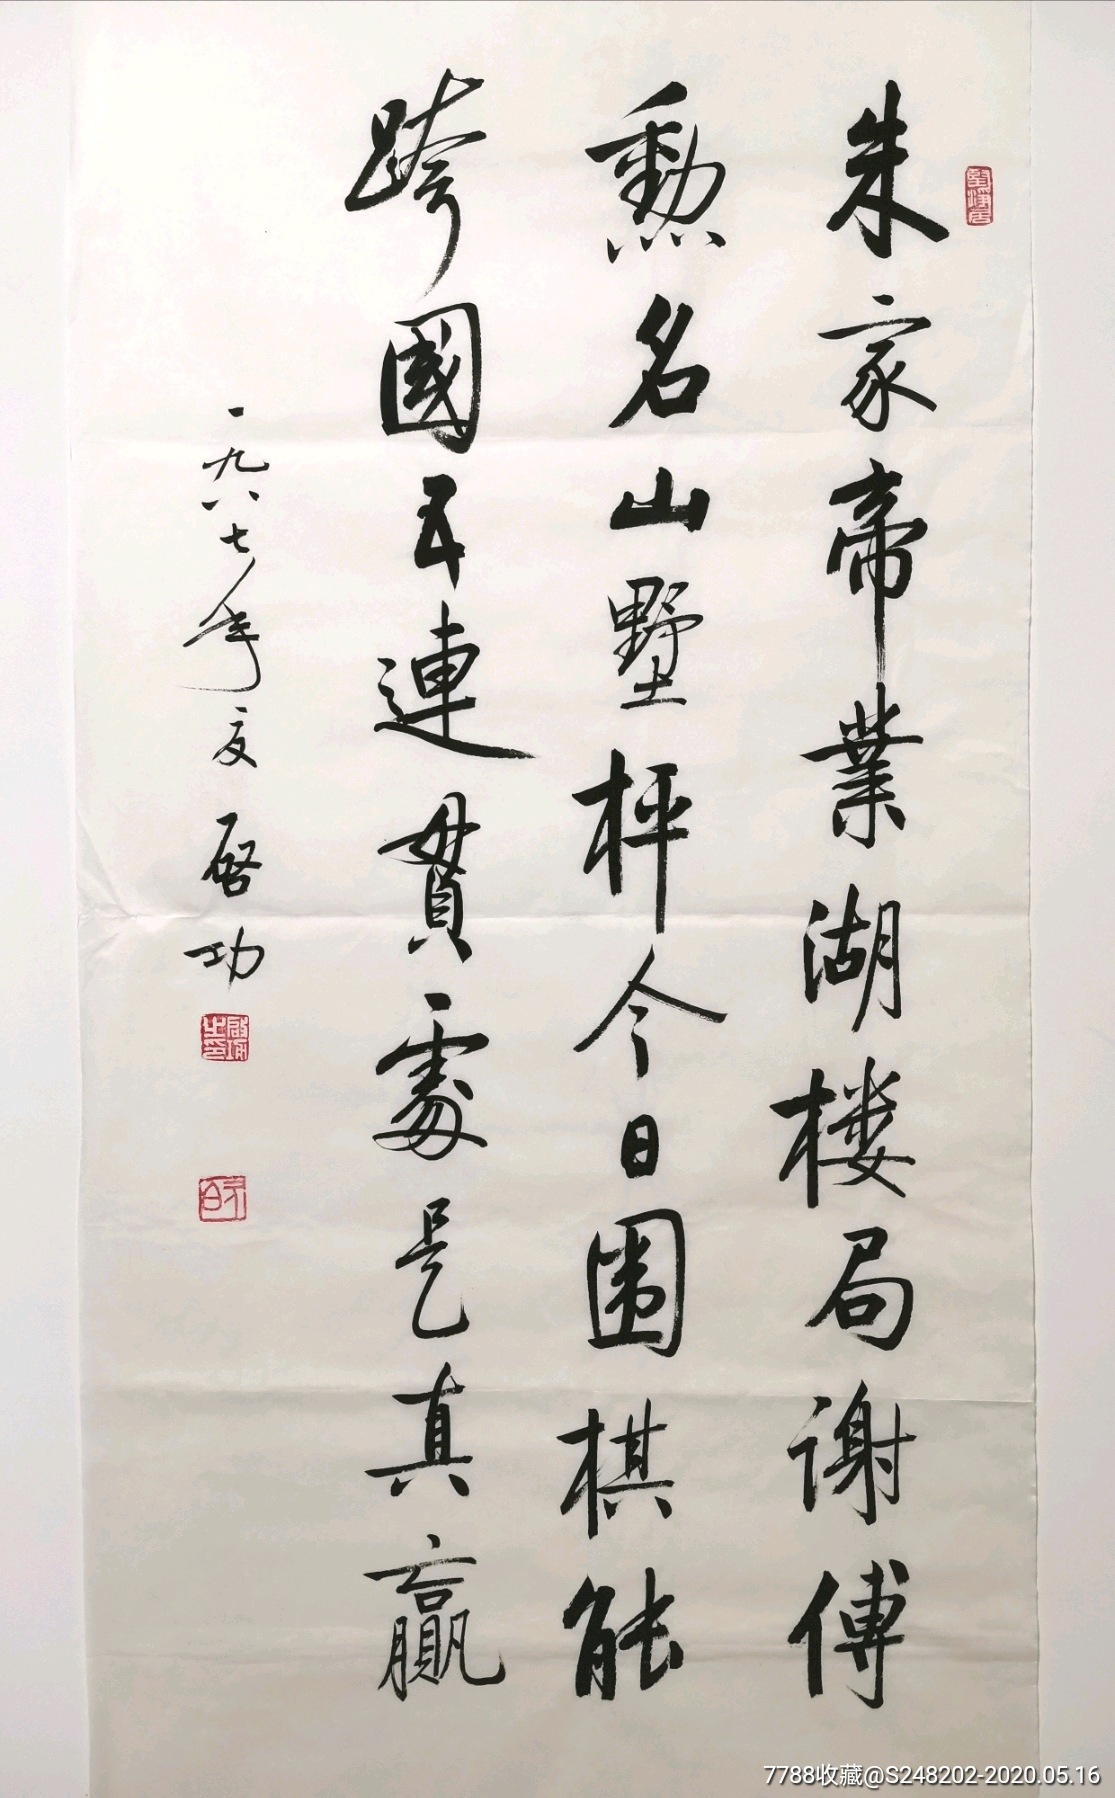 朱家帝業湖楼局谢傅
勲名山墅枰今日围棋能
跨國五連貫處是真贏
一九八七年夏 啓功
7788收藏@S248202-2020.05.16